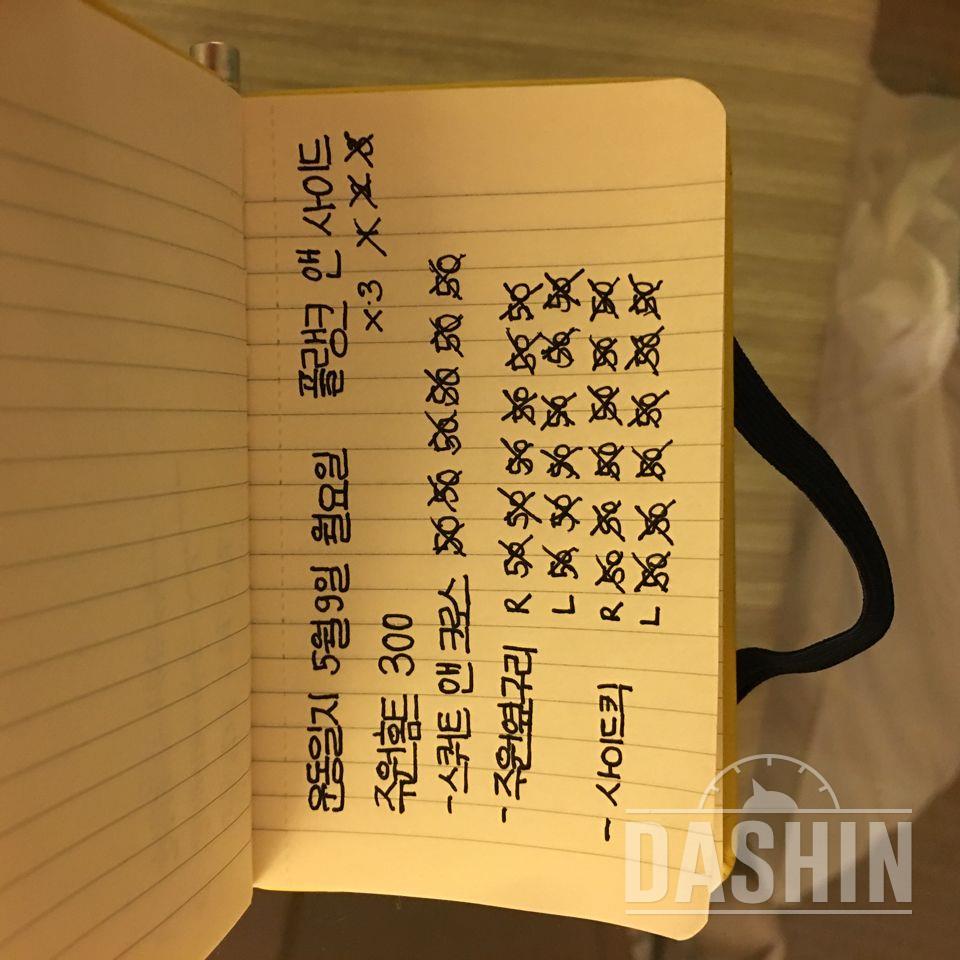 운동일지 5월9일 월요일 플랭크 앤 사이드
x·3 X X X
주원홈트 300
- 스쿼트 앤 크로스 50 50 50 50 50 50
- 주원옆구리 R 50 50 50 50 50 50
L 50 50 50 50 50 50
- 사이드킥 R 50 50 50 50 50 50
L 50 50 50 50 50 50
DASHIN